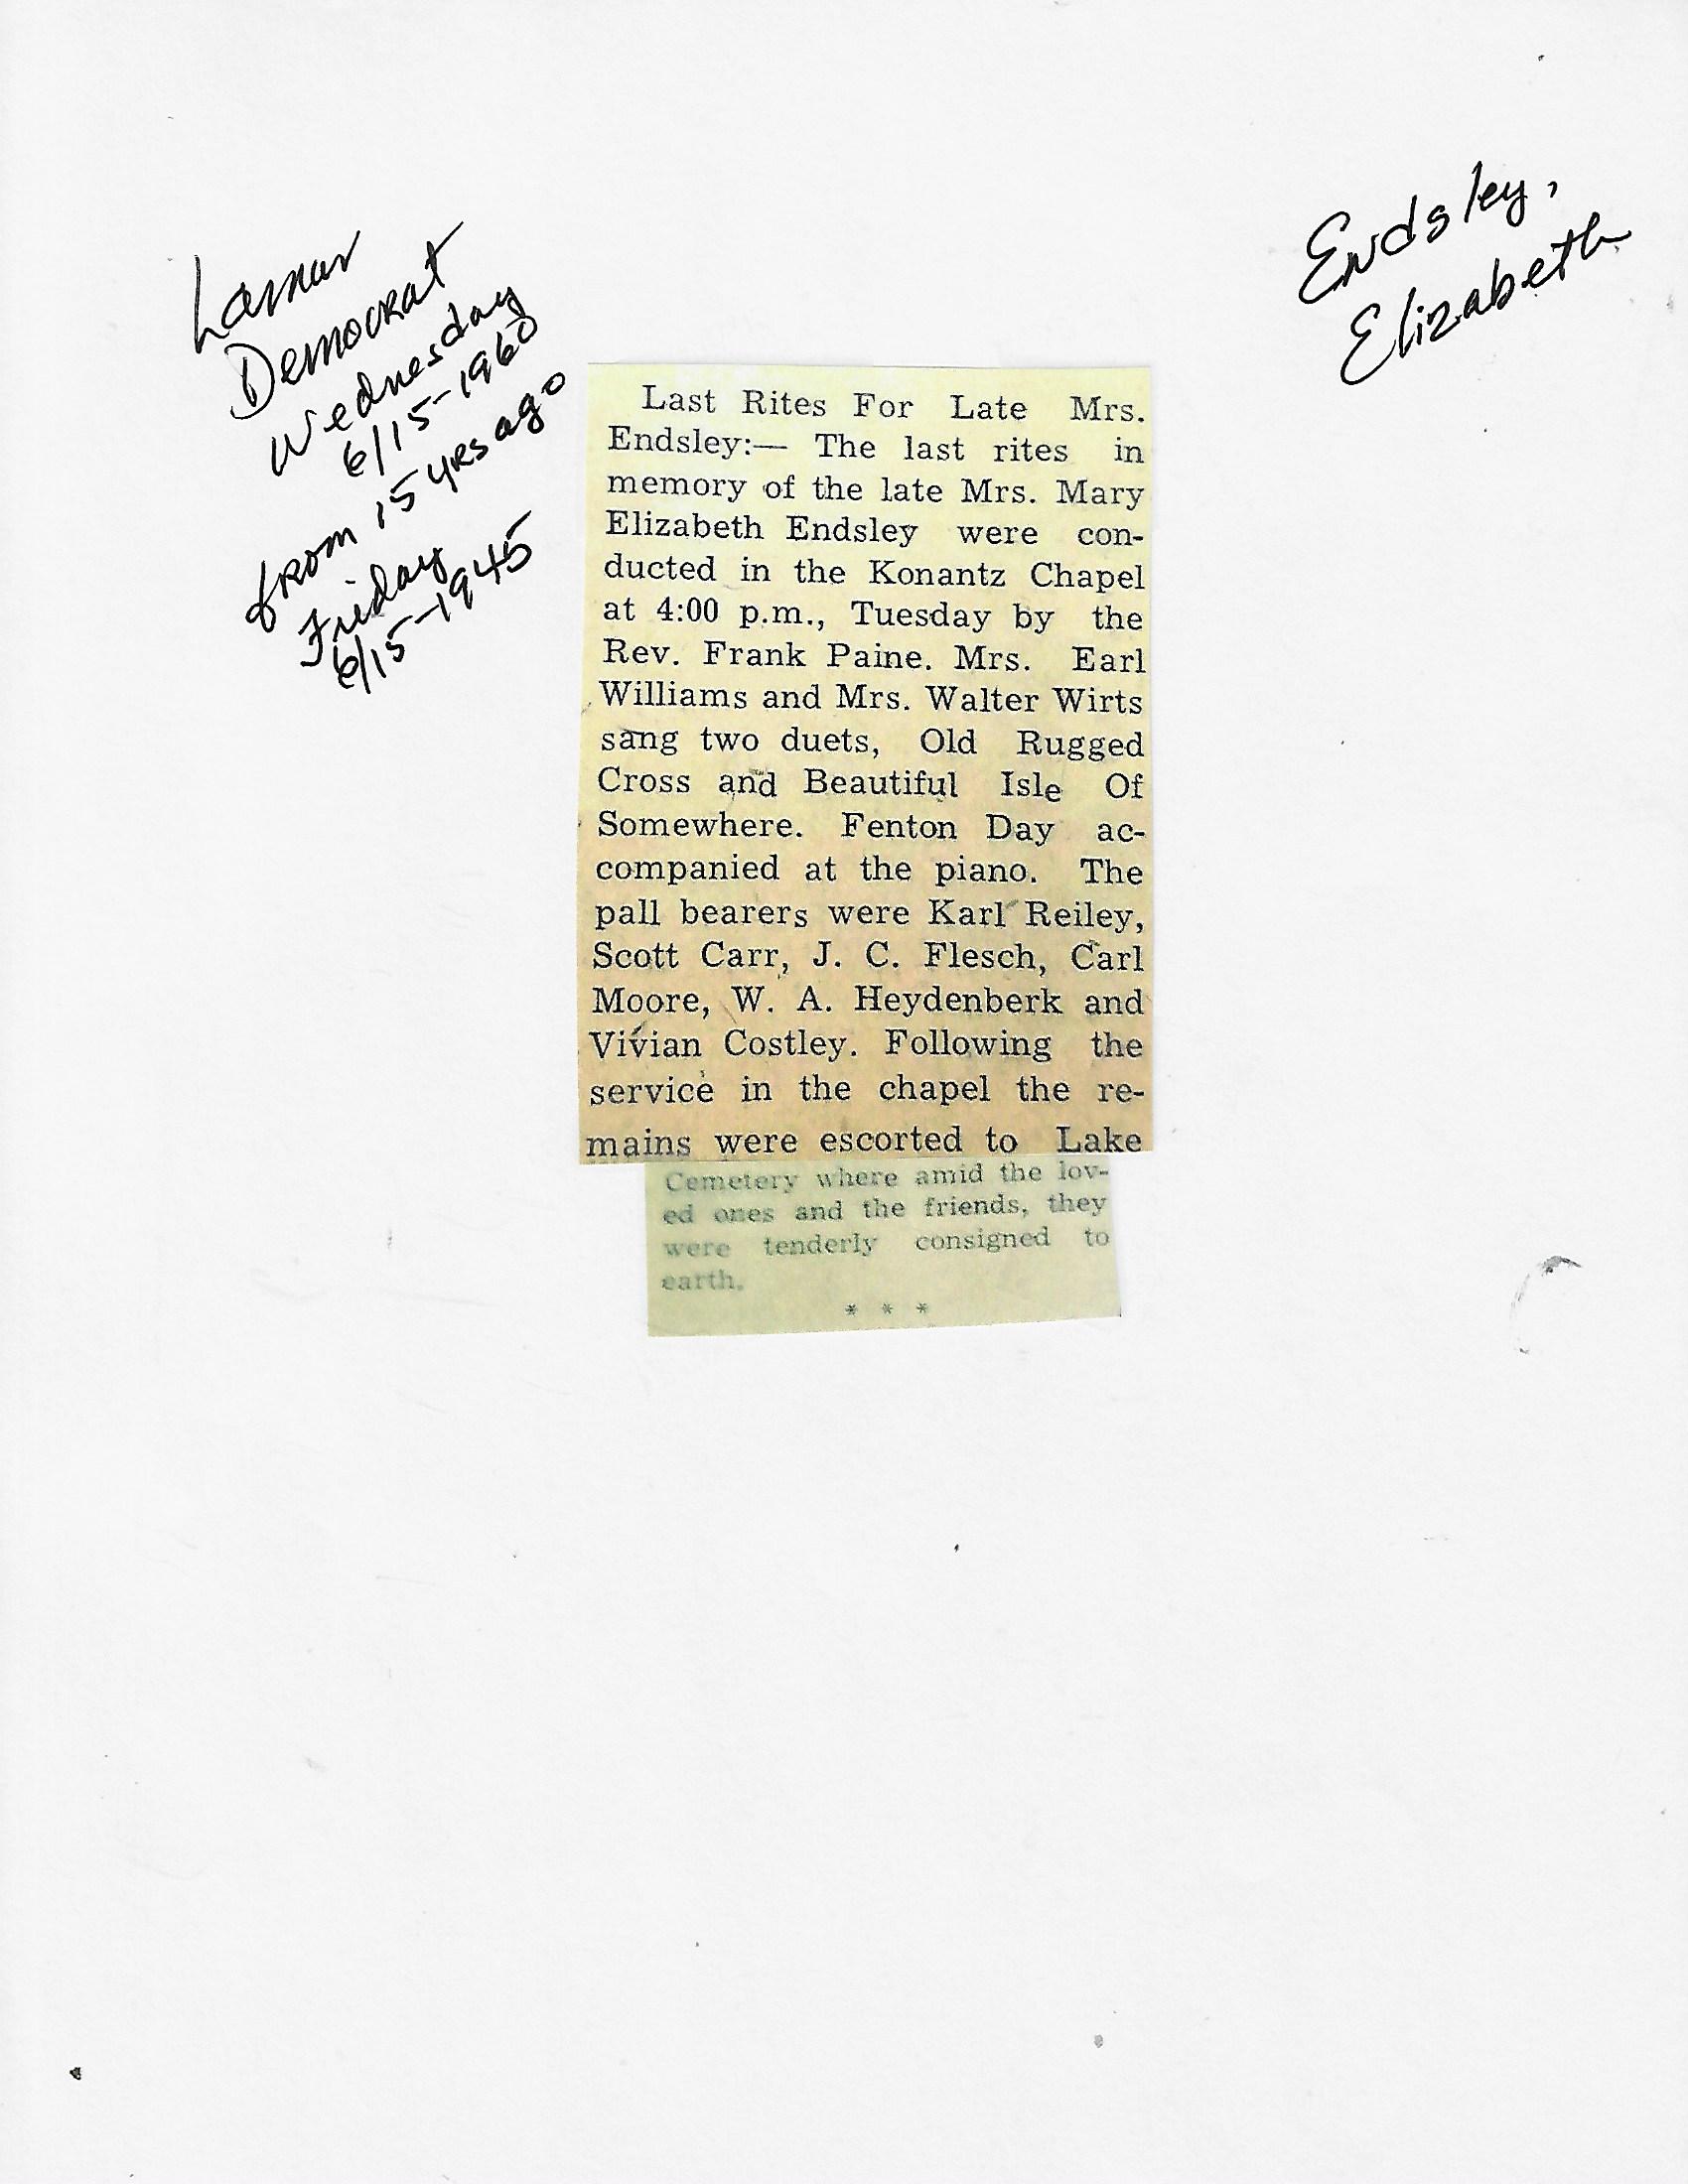 Lamar
Democrat
Wednesday
6/15-1960
from 15 yrs ago
Friday
6/15-1945
Endsley,
Elizabeth
Last Rites For Late Mrs.
Endsley:— The last rites in
memory of the late Mrs. Mary
Elizabeth Endsley were con-
ducted in the Konantz Chapel
at 4:00 p.m., Tuesday by the
Rev. Frank Paine. Mrs. Earl
Williams and Mrs. Walter Wirts
sang two duets, Old Rugged
Cross and Beautiful Isle Of
Somewhere. Fenton Day ac-
companied at the piano. The
pall bearers were Karl Reiley,
Scott Carr, J. C. Flesch, Carl
Moore, W. A. Heydenberk and
Vivian Costley. Following the
service in the chapel the re-
mains were escorted to Lake
Cemetery where amid the lov-
ed ones and the friends, they
were tenderly consigned to
earth.
* * *